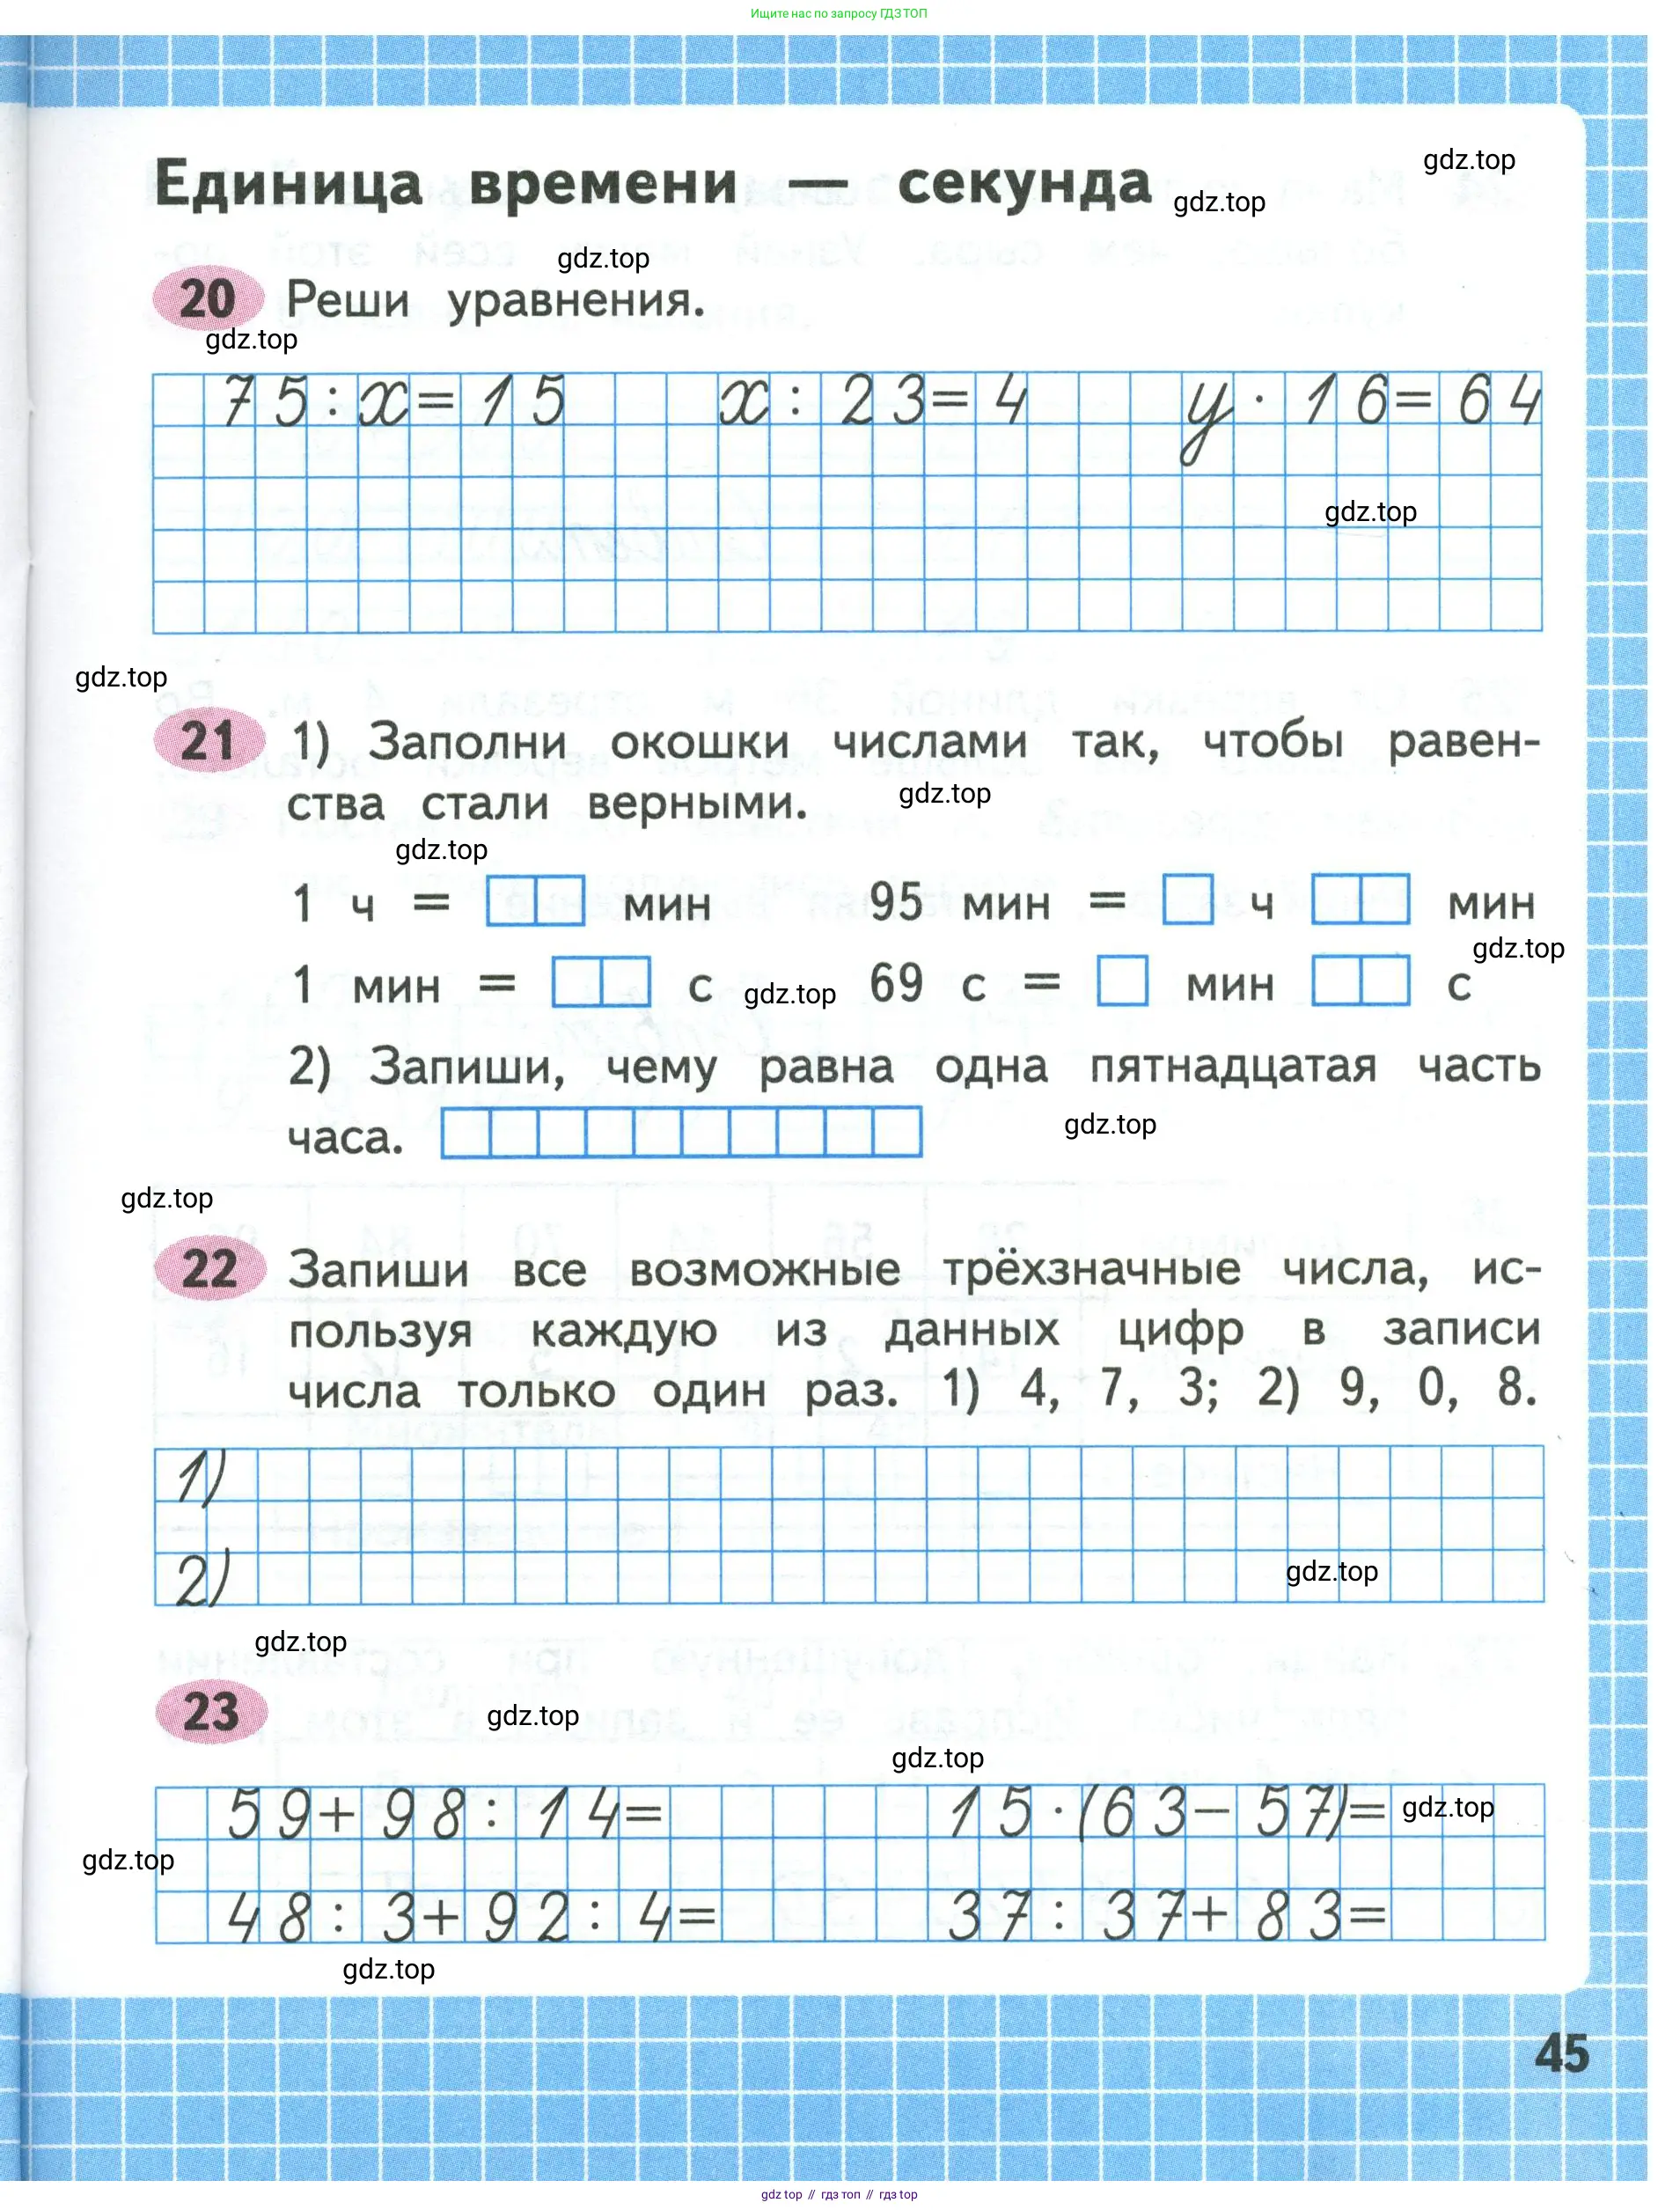 Ищите нас по запросу ГДЗ ТОП
gdz.top
Единица времени — секунда
gdz.top
gdz.top
20 Реши уравнения.
gdz.top
75:x=15 x:23=4 y·16=64
gdz.top
gdz.top
21 1) Заполни окошки числами так, чтобы равен-
ства стали верными.
gdz.top
gdz.top
1 ч = мин 95 мин = ч мин
gdz.top
1 мин = с gdz.top 69 с = мин с
2) Запиши, чему равна одна пятнадцатая часть
часа.
gdz.top
gdz.top
22 Запиши все возможные трёхзначные числа, ис-
пользуя каждую из данных цифр в записи
числа только один раз. 1) 4, 7, 3; 2) 9, 0, 8.
1)
2)
gdz.top
gdz.top
23
gdz.top
gdz.top
59+98:14= 15·(63−57)= gdz.top
gdz.top
48:3+92:4= 37:37+83=
gdz.top
45
gdz top // гдз топ // гдз top